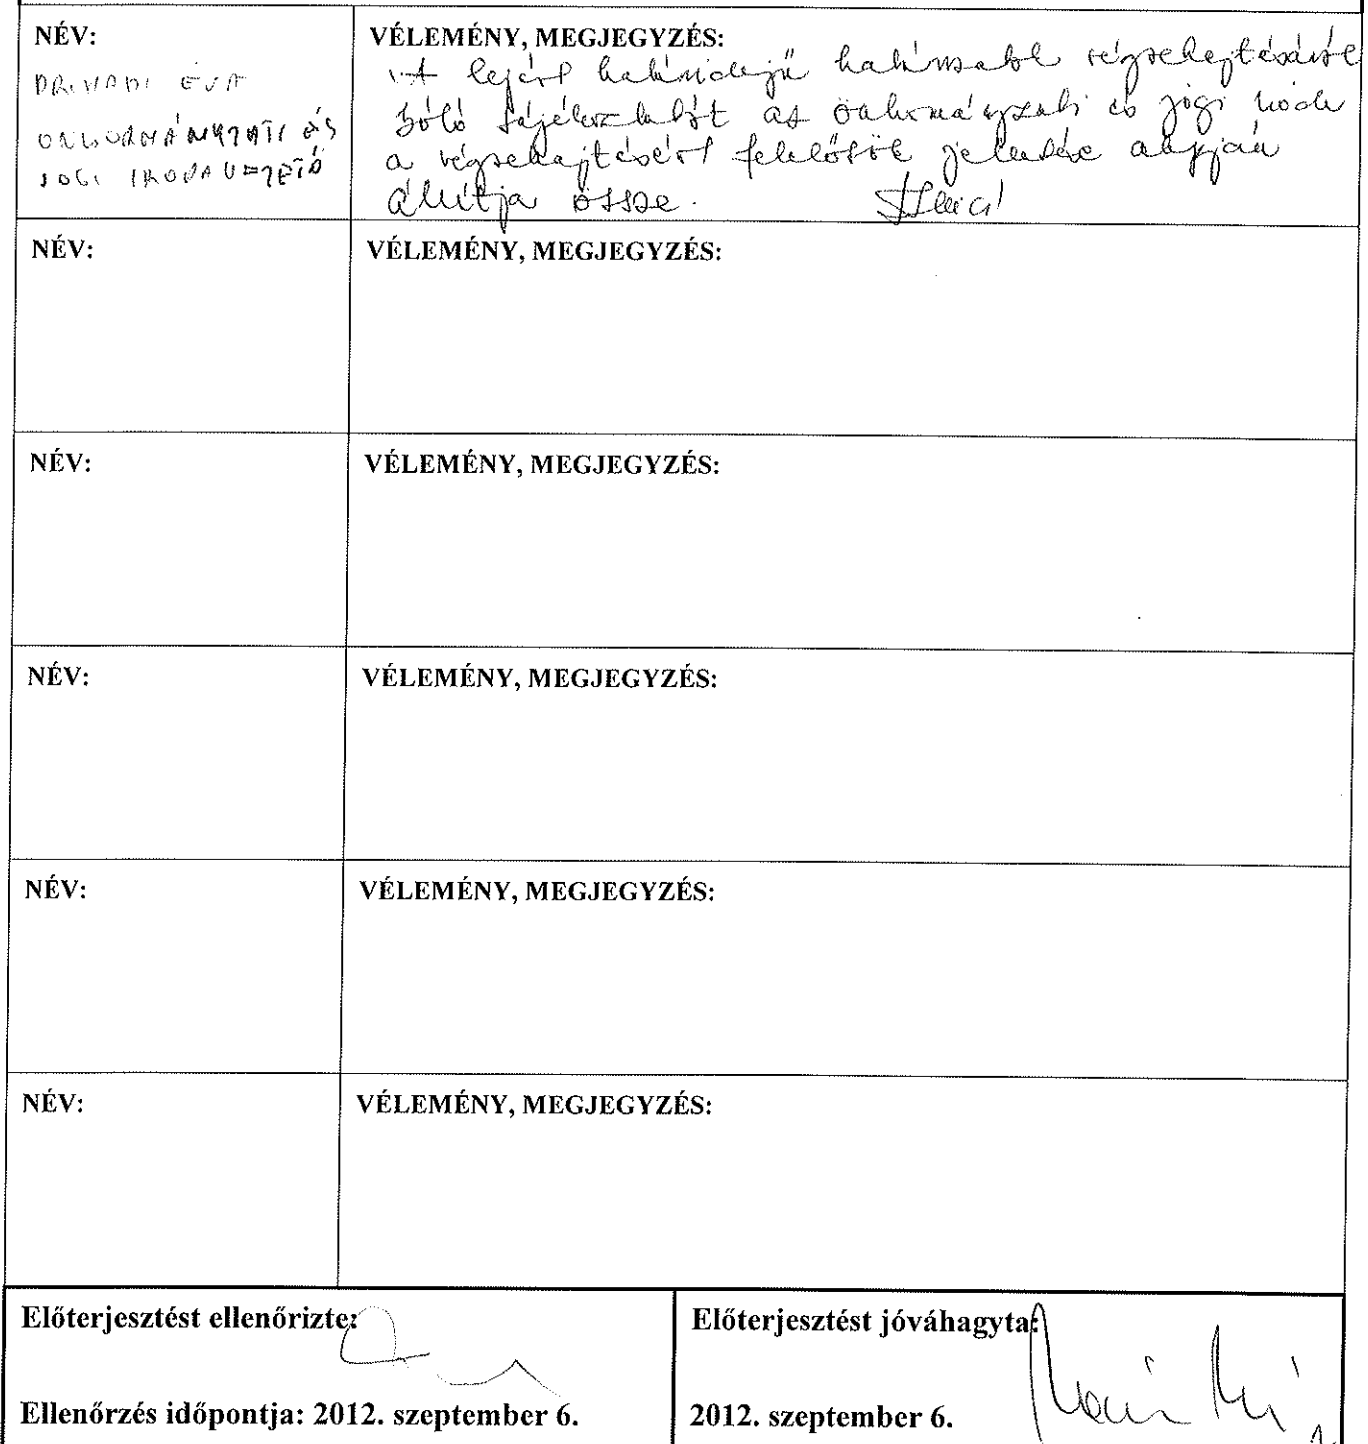 NÉV:
VÉLEMÉNY, MEGJEGYZÉS:
ÉVA
ÖNKORMÁNYZATI ÉS
JOGI IRODAVEZETŐ
A lejárt határidejű határozatok végrehajtásáról
szóló tájékoztatót az önkormányzati és jogi iroda
a végrehajtásért felelősök jelentése alapján
állítja össze.
NÉV:
VÉLEMÉNY, MEGJEGYZÉS:
NÉV:
VÉLEMÉNY, MEGJEGYZÉS:
NÉV:
VÉLEMÉNY, MEGJEGYZÉS:
NÉV:
VÉLEMÉNY, MEGJEGYZÉS:
NÉV:
VÉLEMÉNY, MEGJEGYZÉS:
Előterjesztést ellenőrizte:
Ellenőrzés időpontja: 2012. szeptember 6.
Előterjesztést jóváhagyta:
2012. szeptember 6.